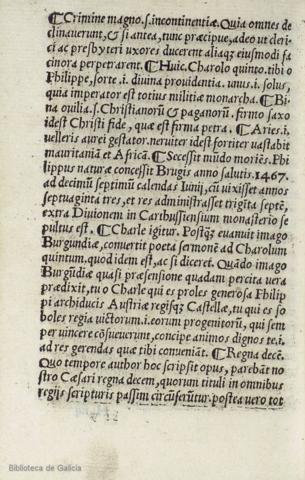 ¶ Crimine magno.s.incontinentiæ. Quia omnes de
clinauerunt, & si antea, tunc præcipue, adeo ut cleri⸗
ci ac presbyteri uxores ducerent aliaqʒ eiusmodi fa
cinora perpetrarent. ¶ Huic. Charolo quinto. tibi o
Philippe, sorte .i. diuina prouidentia. unus .i. solus,
quia imperator est totius militiæ monarcha. ¶ Bi⸗
na ouilia.s. Christianorũ & paganorũ. firmo saxo
idest Christi fide, quæ est firma petra. ¶ Aries .i.
uelleris aurei gestator. neruiter idest fortiter uastabit
mauritaniã et Africã. ¶ Secessit mũdo moriẽs. Phi
lippus naturæ concessit Brugis anno salutis. 1467.
ad decimũ septimũ calendas Iunij, cũ uixisset annos
septuaginta tres, et res administrasset trigĩta septẽ,
extra Diuionem in Carthussensium monasterio se
pultus est. ¶ Charle igitur. Postqʒ̃ euanuit imago
Burgundiæ, conuertit poeta sermonẽ ad Charolum
quintum, quod idem est, ac si diceret. Quãdo imago
Burgũdiæ quasi præsensione quadam percita uera
prædixit, tu o Charle qui es proles generosa Philip
pi archiducis Austriæ regisqʒ Castellæ, tu qui es so
boles regia uictorum .i. eorum progenitorũ, qui sem
per uincere cõsueuerunt, concipe animos dignos te .i.
ad res gerendas quæ tibi conueniãt. ¶ Regna decẽ.
Quo tempore author hoc scripsit opus, parebãt no
stro Cæsari regna decem, quorum tituli in omnibus
regijs scripturis passim circũferũtur. postea uero tot
Biblioteca de Galicia